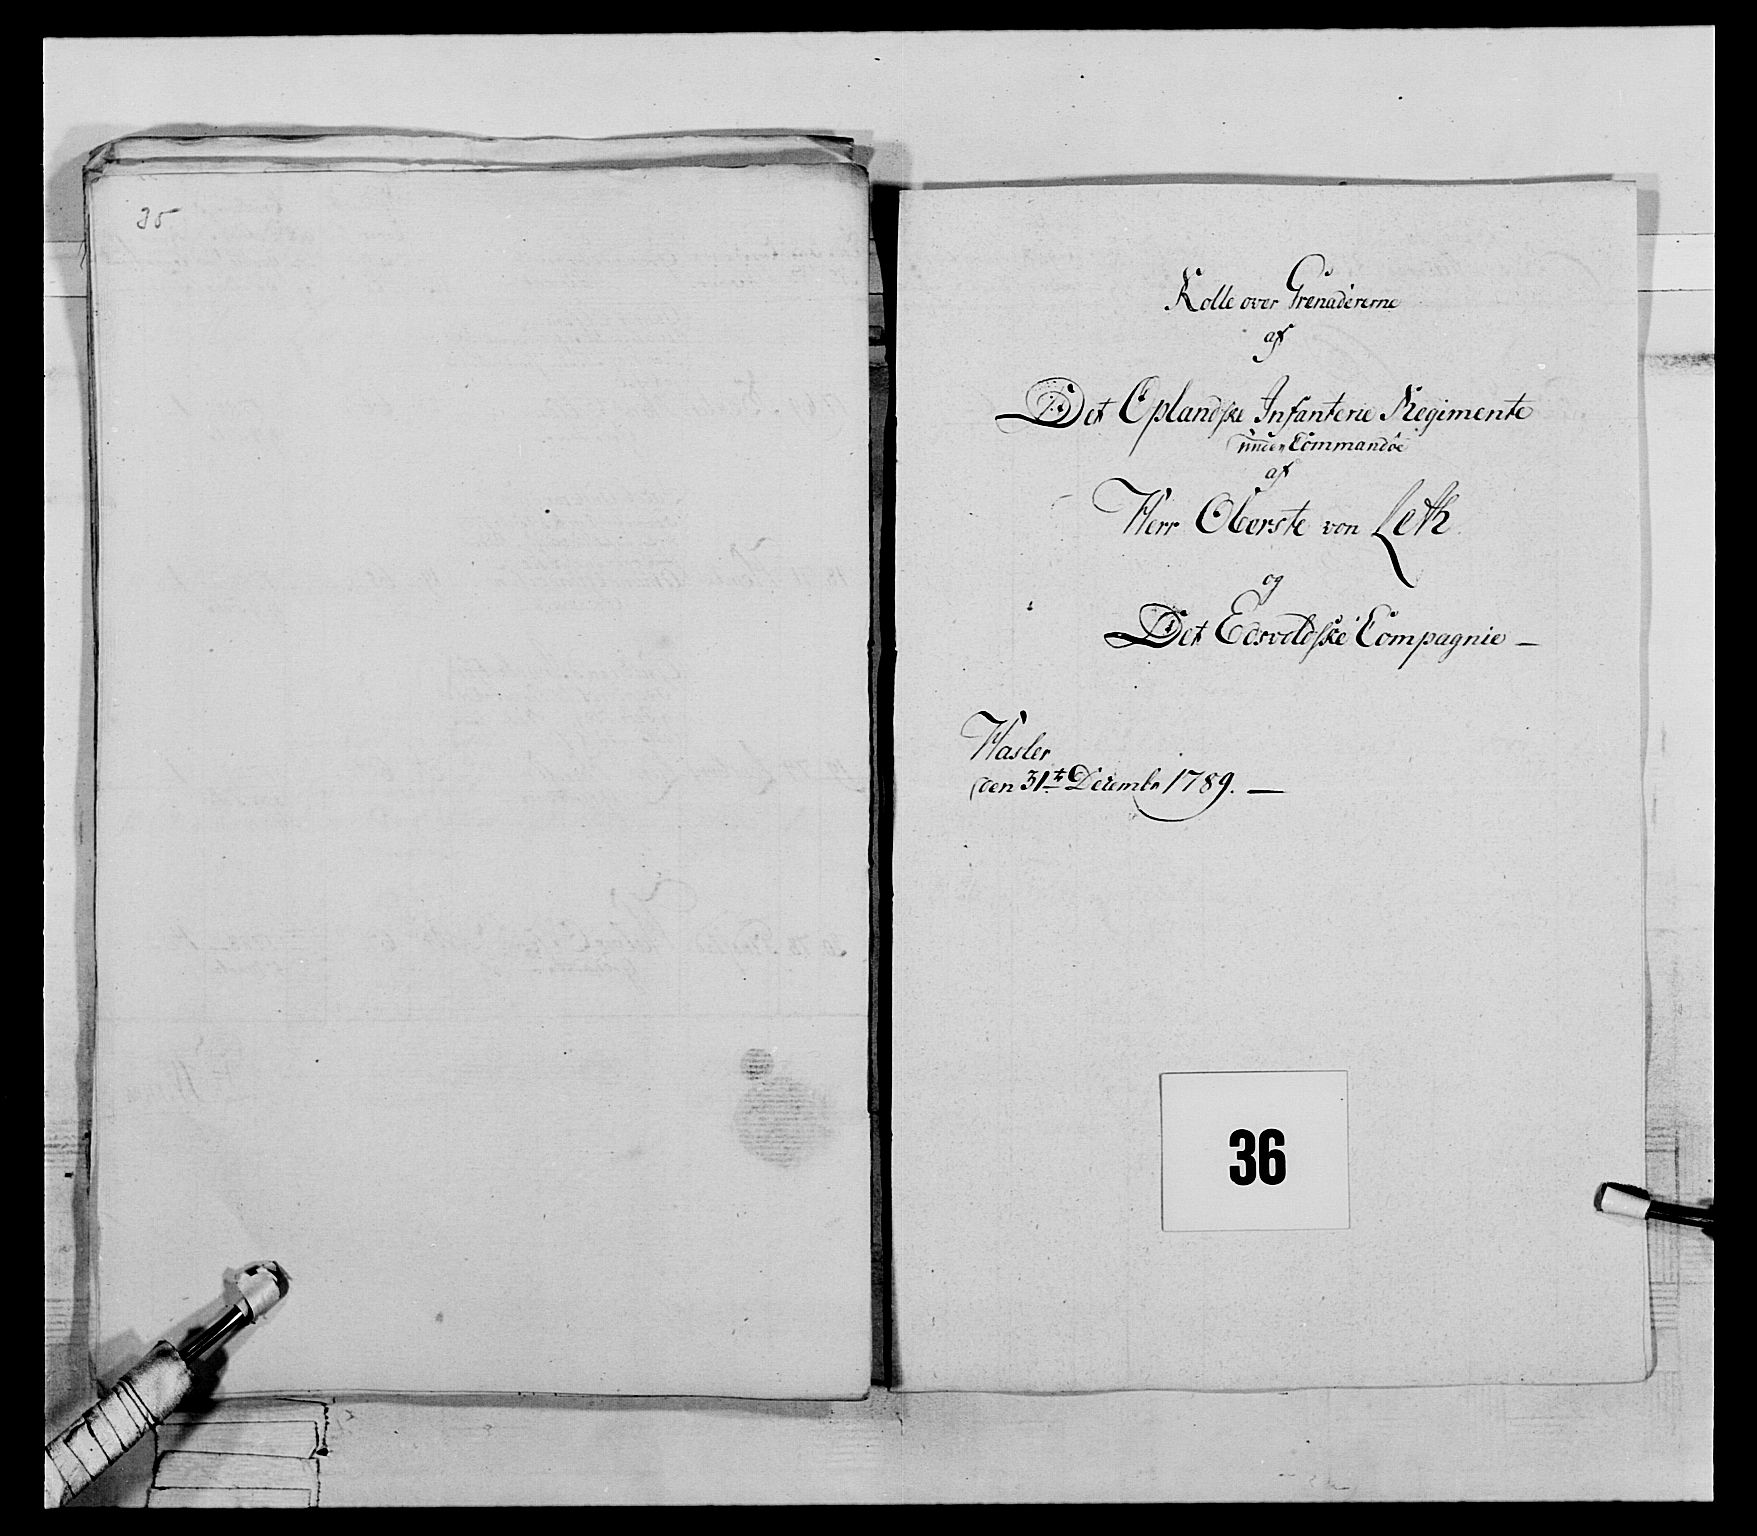 35
Rolle over Grenadererne
af
Det Oplandske Infanterie Regimente
under Commandoe
af
Herr Oberste von Leth
og
Det Edsvoldske Compagnie —
Hasler
den 31te Decembr 1789. —
36